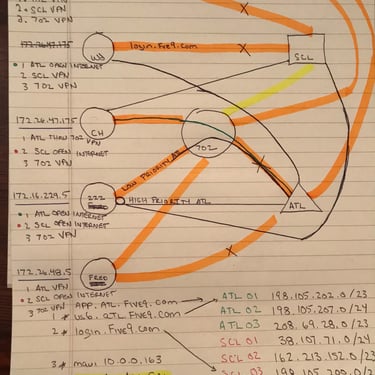 2 * SCL VPN
3. 702 VPN
172.26.47.175
WJ
login.Five9.com
X
SCL
1 ATL OPEN INTERNET
2 SCL VPN
3 702 VPN
172.26.47.175
CH
1 ATL THAN 702
VPN
2 SCL OPEN INTERNET
3 702 VPN
702
LOW PRIORITY ATL
172.16.229.5
222
HIGH PRIORITY ATL
ATL
1 ATL OPEN INTERNET
2 SCL OPEN INTERNET
3 702 VPN
172.26.48.5
FRED
X
1 ATL VPN
2 SCL OPEN INTERNET
3 702 VPN
APP.ATL.Five9.com
1 * web.atl.Five9.com
2 * login.Five9.com
3 * maui 10.0.0.163
ATL 01 198.105.202.0/23
ATL 02 198.105.207.0/24
ATL 03 208.69.28.0/23
SCL 01 38.107.71.0/24
SCL 02 162.213.152.0/23
SCL 03 198.105.200.0/23